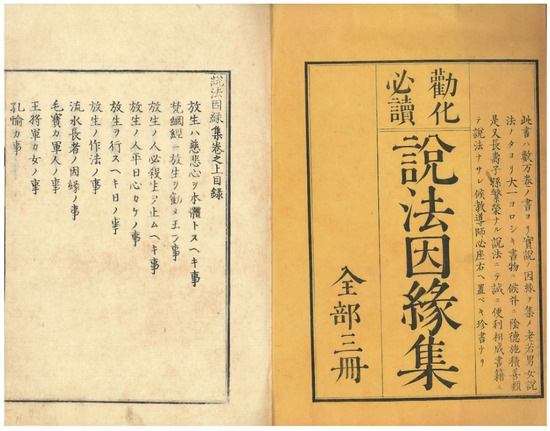 此書ハ数万巻ノ書ヨリ實説ノ因縁ヲ集メ老若男女説
法ノタヨリ大一ヨロシキ書物ニ候并ニ陰徳施積善類
是又長壽子孫繁榮ナル説法ニテ誠ニ便利相成書籍ニ
テ説法ナサレ候教導師必座右ヘ置ベキ珍書ナリ
勸化
必讀
説法因緣集
全部三冊
説法因縁集巻之上目録
放生ハ慈悲心ヲ本體トスヘキ事
梵網經ニ放生ヲ勸メ玉フ事
放生ノ人必殺生ヲ止ムヘキ事
放生ノ人平日心カケノ事
放生ヲ行スヘキ日ノ事
放生ノ作法ノ事
流水長者ノ因縁ノ事
毛寶カ軍人ノ事
王将軍カ女ノ事
孔愉カ事